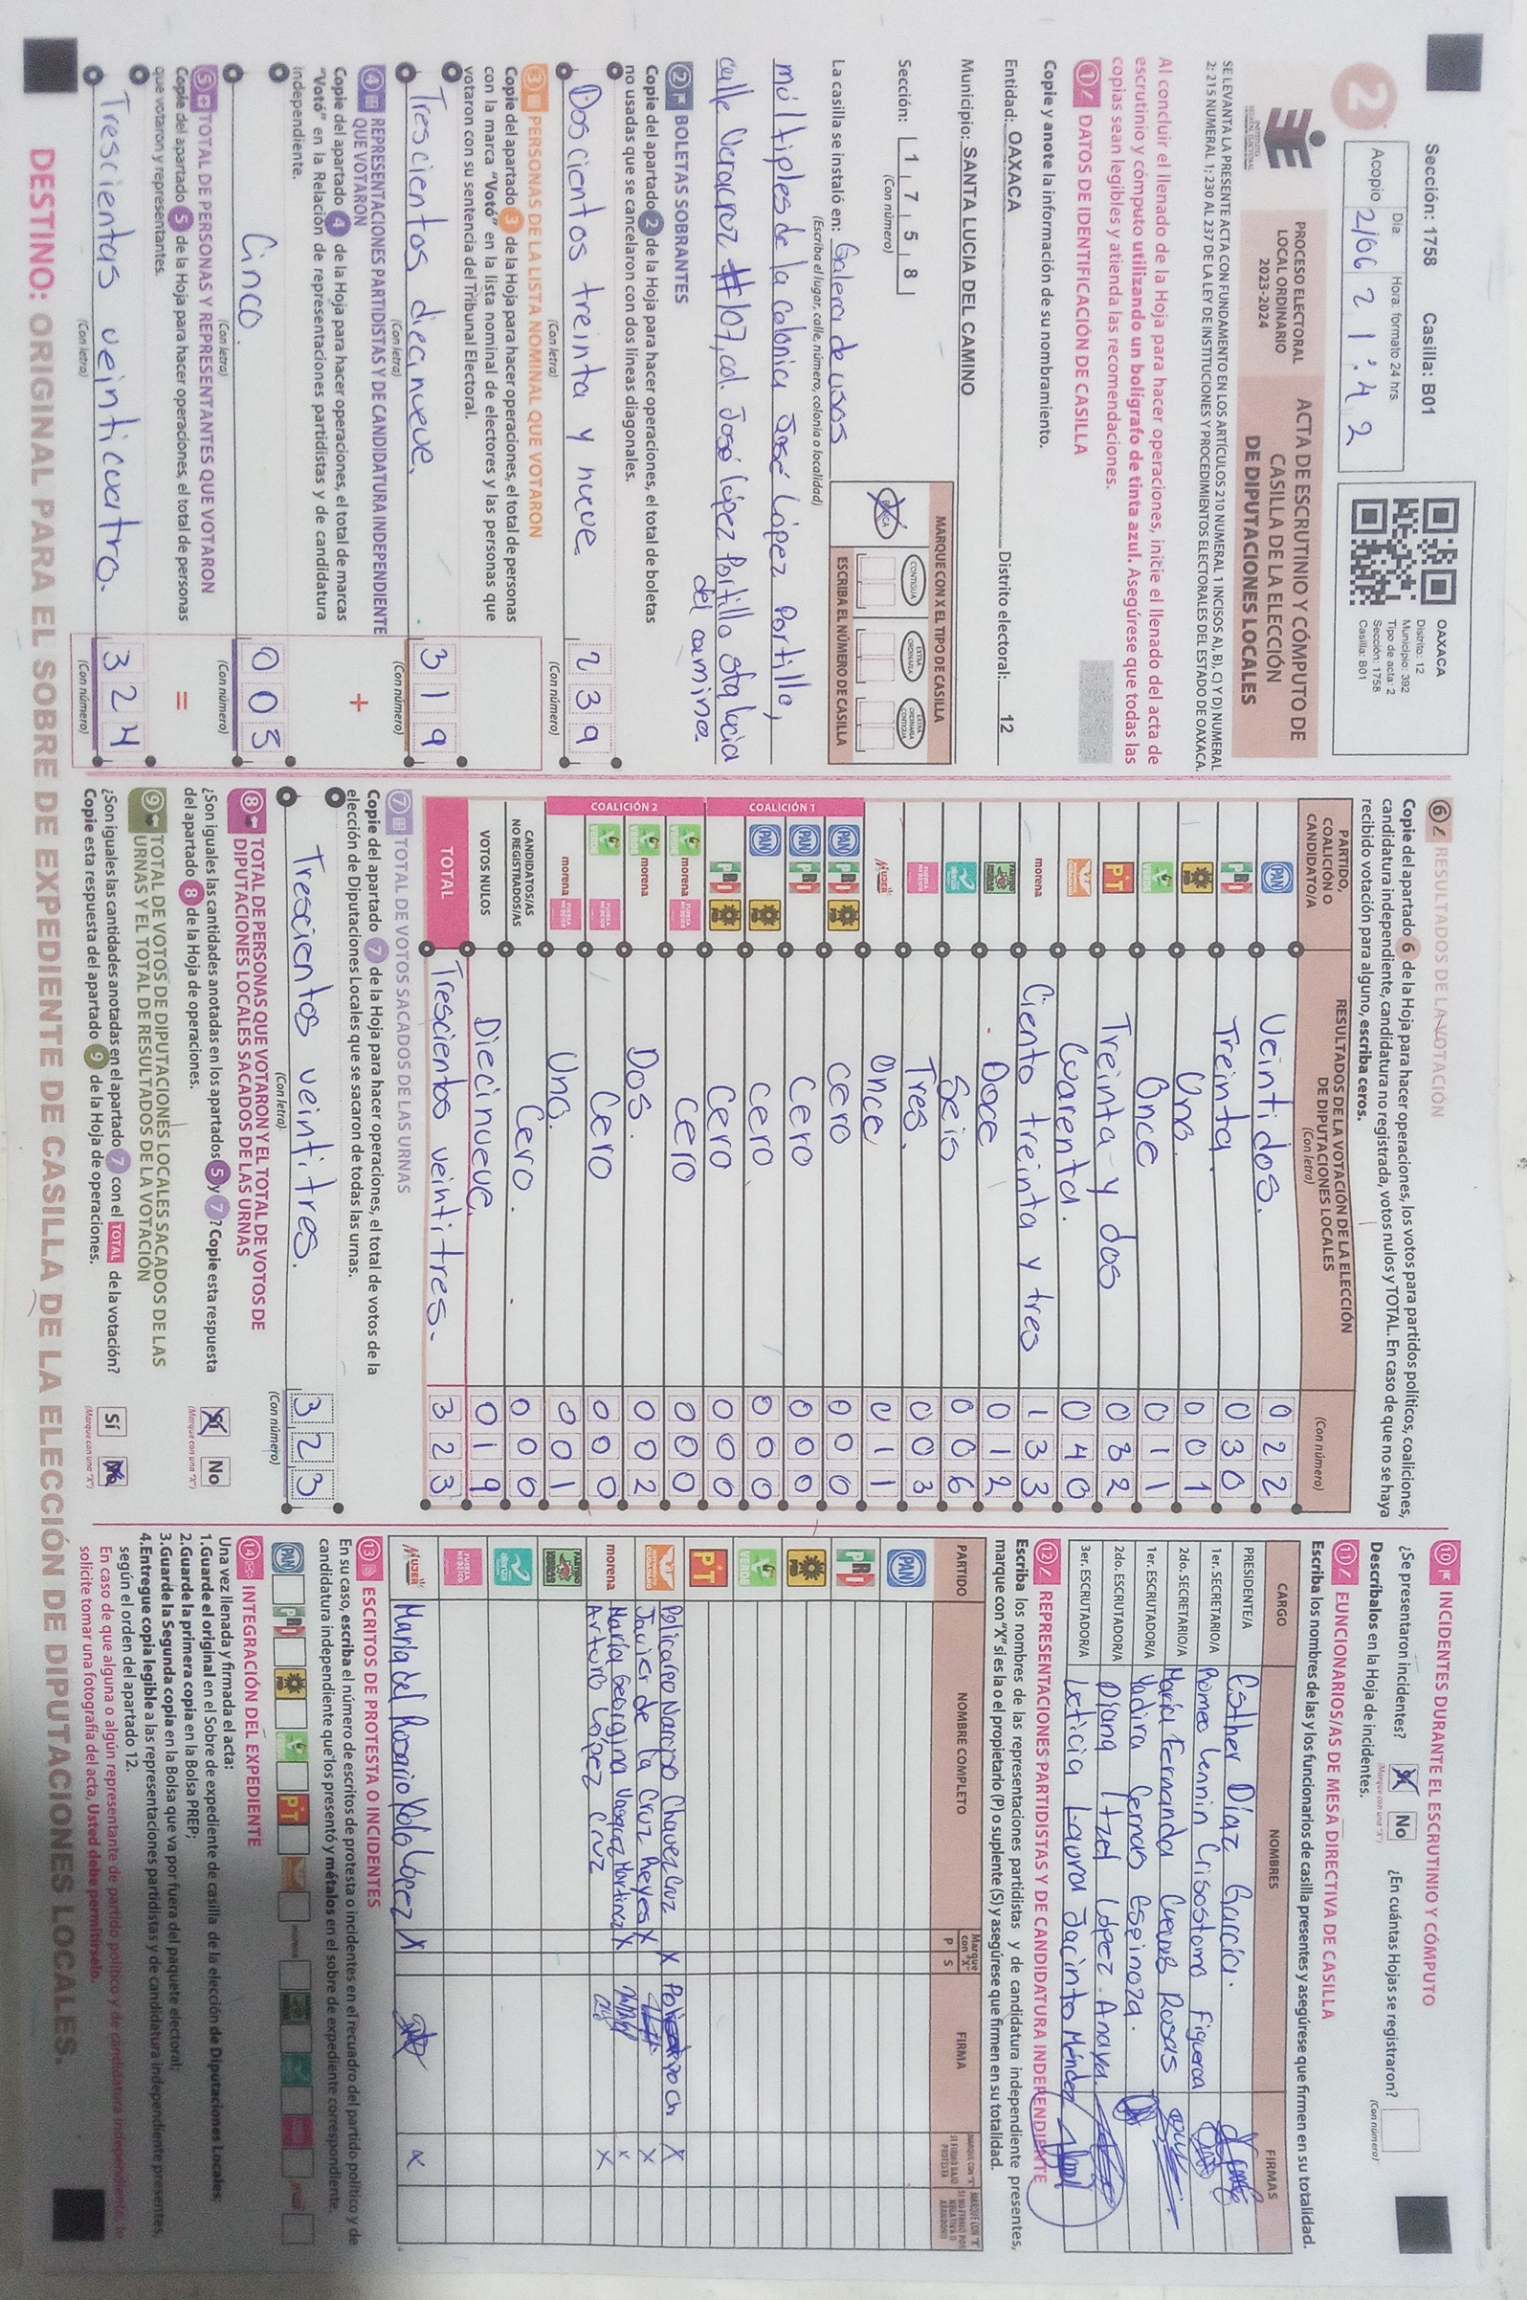 Sección: 1758 Casilla: B01
2
Acopio
Día: Hora: formato 24 hrs
2/06 21:42
OAXACA
Distrito: 12
Municipio: 392
Tipo de acta: 2
Sección: 1758
Casilla: B01
PROCESO ELECTORAL
LOCAL ORDINARIO
2023-2024
ACTA DE ESCRUTINIO Y CÓMPUTO DE
CASILLA DE LA ELECCIÓN
DE DIPUTACIONES LOCALES
SE LEVANTA LA PRESENTE ACTA CON FUNDAMENTO EN LOS ARTÍCULOS 210 NUMERAL 1 INCISOS A), B), C) Y D) NUMERAL
2; 215 NUMERAL 1; 230 AL 237 DE LA LEY DE INSTITUCIONES Y PROCEDIMIENTOS ELECTORALES DEL ESTADO DE OAXACA.
Al concluir el llenado de la Hoja para hacer operaciones, inicie el llenado del acta de
escrutinio y cómputo utilizando un bolígrafo de tinta azul. Asegúrese que todas las
copias sean legibles y atienda las recomendaciones.
1 DATOS DE IDENTIFICACIÓN DE CASILLA
Copie y anote la información de su nombramiento.
Entidad: OAXACA Distrito electoral: 12
Municipio: SANTA LUCIA DEL CAMINO
Sección: 1 7 5 8
(Con número)
MARQUE CON X EL TIPO DE CASILLA
CONTIGUA EXTRA ORDINARIA EXTRA ORDINARIA CONTIGUA
ESCRIBA EL NÚMERO DE CASILLA
La casilla se instaló en: Galera de usos
(Escriba el lugar, calle, número, colonia o localidad)
múltiples de la Colonia José López Portillo,
calle Veracruz #107, col. José López Portillo Sta lucia
del camino.
2 BOLETAS SOBRANTES
Copie del apartado 2 de la Hoja para hacer operaciones, el total de boletas
no usadas que se cancelaron con dos líneas diagonales.
Doscientos treinta y nueve 2 3 9
(Con letra) (Con número)
3 PERSONAS DE LA LISTA NOMINAL QUE VOTARON
Copie del apartado 3 de la Hoja para hacer operaciones, el total de personas
con la marca "Votó" en la lista nominal de electores y las personas que
votaron con su sentencia del Tribunal Electoral.
Trescientos diecinueve. 3 1 9
(Con letra) (Con número)
4 REPRESENTACIONES PARTIDISTAS Y DE CANDIDATURA INDEPENDIENTE
QUE VOTARON
+
Copie del apartado 4 de la Hoja para hacer operaciones, el total de marcas
"Votó" en la Relación de representaciones partidistas y de candidatura
independiente.
Cinco. 0 0 5
(Con letra) (Con número)
5 TOTAL DE PERSONAS Y REPRESENTANTES QUE VOTARON
=
Copie del apartado 5 de la Hoja para hacer operaciones, el total de personas
que votaron y representantes.
Trescientas veinticuatro. 3 2 4
(Con letra) (Con número)
6 RESULTADOS DE LA VOTACIÓN
Copie del apartado 6 de la Hoja para hacer operaciones, los votos para partidos políticos, coaliciones,
candidatura independiente, candidatura no registrada, votos nulos y TOTAL. En caso de que no se haya
recibido votación para alguno, escriba ceros.
PARTIDO,
COALICIÓN O
CANDIDATO/A
RESULTADOS DE LA VOTACIÓN DE LA ELECCIÓN
DE DIPUTACIONES LOCALES
(Con letra)
(Con número)
PAN Veintidos. 0 2 2
PRI Treinta. 0 3 0
PRD Uno. 0 0 1
VERDE Once 0 1 1
PT Treinta y dos 0 3 2
Cuarenta. 0 4 0
morena Ciento treinta y tres 1 3 3
Doce 0 1 2
Seis 0 0 6
Tres. 0 0 3
MUJER Once 0 1 1
COALICIÓN 1
PAN PRI PRD cero 0 0 0
PAN PRI Cero 0 0 0
PAN PRD cero 0 0 0
PRI PRD Cero 0 0 0
COALICIÓN 2
VERDE morena FUERZA MÉXICO Cero 0 0 0
VERDE morena Dos. 0 0 2
VERDE FUERZA MÉXICO Cero 0 0 0
morena FUERZA MÉXICO Uno. 0 0 1
CANDIDATOS/AS
NO REGISTRADOS/AS Cero. 0 0 0
VOTOS NULOS Diecinueve. 0 1 9
TOTAL Trescientos veintitres. 3 2 3
7 TOTAL DE VOTOS SACADOS DE LAS URNAS
Copie del apartado 7 de la Hoja para hacer operaciones, el total de votos de la
elección de Diputaciones Locales que se sacaron de todas las urnas.
Trescientos veintitres. 3 2 3
(Con letra) (Con número)
8 TOTAL DE PERSONAS QUE VOTARON Y EL TOTAL DE VOTOS DE
DIPUTACIONES LOCALES SACADOS DE LAS URNAS
¿Son iguales las cantidades anotadas en los apartados 5 y 7? Copie esta respuesta
del apartado 8 de la Hoja de operaciones.
Sí No
(Marque con una "X")
9 TOTAL DE VOTOS DE DIPUTACIONES LOCALES SACADOS DE LAS
URNAS Y EL TOTAL DE RESULTADOS DE LA VOTACIÓN
¿Son iguales las cantidades anotadas en el apartado 7 con el TOTAL de la votación?
Copie esta respuesta del apartado 9 de la Hoja de operaciones.
Sí No
(Marque con una "X")
10 INCIDENTES DURANTE EL ESCRUTINIO Y CÓMPUTO
¿Se presentaron incidentes? Sí No ¿En cuántas Hojas se registraron?
(Marque con una "X") (Con número)
Descríbalos en la Hoja de incidentes.
11 FUNCIONARIOS/AS DE MESA DIRECTIVA DE CASILLA
Escriba los nombres de las y los funcionarios de casilla presentes y asegúrese que firmen en su totalidad.
CARGO NOMBRES FIRMAS
PRESIDENTE/A Esther Díaz García.
1er. SECRETARIO/A Romeo Lennin Crisostomo Figueroa
2do. SECRETARIO/A María Fernanda Cuevas Rosas
1er. ESCRUTADOR/A Yadira Cernas Espinoza.
2do. ESCRUTADOR/A Diana Itzel López Anaya.
3er. ESCRUTADOR/A Leticia Laura Jacinto Méndez
12 REPRESENTACIONES PARTIDISTAS Y DE CANDIDATURA INDEPENDIENTE
Escriba los nombres de las representaciones partidistas y de candidatura independiente presentes,
marque con "X" si es la o el propietario (P) o suplente (S) y asegúrese que firmen en su totalidad.
PARTIDO NOMBRE COMPLETO Marque con "X" P S FIRMA
PAN
PRI
PRD
VERDE
PT Policarpo Naranjo Chavez Cruz X X
Javier de la Cruz Reyes X X
morena María Georgina Vasquez Martinez X X
Arturo López Cruz X
MUJER Maria del Rosario Polo López X X
13 ESCRITOS DE PROTESTA O INCIDENTES
En su caso, escriba el número de escritos de protesta o incidentes en el recuadro del partido político y de
candidatura independiente que los presentó y métalos en el sobre de expediente correspondiente.
PAN PRI PRD VERDE PT morena
14 INTEGRACIÓN DEL EXPEDIENTE
Una vez llenada y firmada el acta:
1.Guarde el original en el Sobre de expediente de casilla de la elección de Diputaciones Locales;
2.Guarde la primera copia en la Bolsa PREP;
3.Guarde la Segunda copia en la Bolsa que va por fuera del paquete electoral;
4.Entregue copia legible a las representaciones partidistas y de candidatura independiente presentes,
según el orden del apartado 12.
En caso de que alguna o algún representante de partido político y de candidatura independiente, le
solicite tomar una fotografía del acta, Usted debe permitírselo.
DESTINO: ORIGINAL PARA EL SOBRE DE EXPEDIENTE DE CASILLA DE LA ELECCIÓN DE DIPUTACIONES LOCALES.